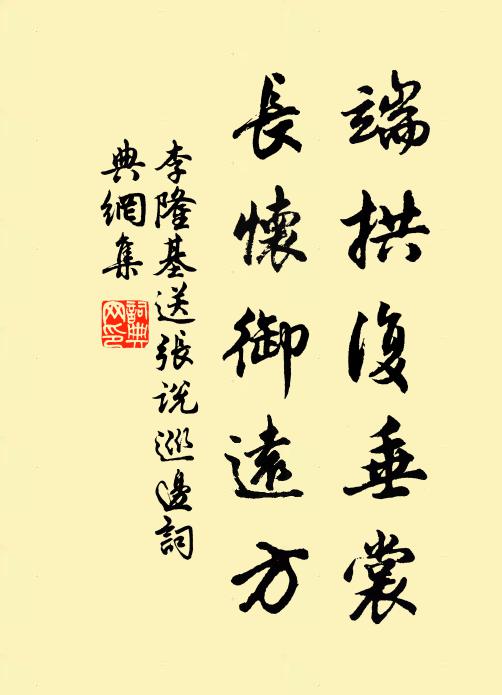 端拱復垂裳
長懷御遠方
李隆基送張説巡邊詞
典網集
詞典網印